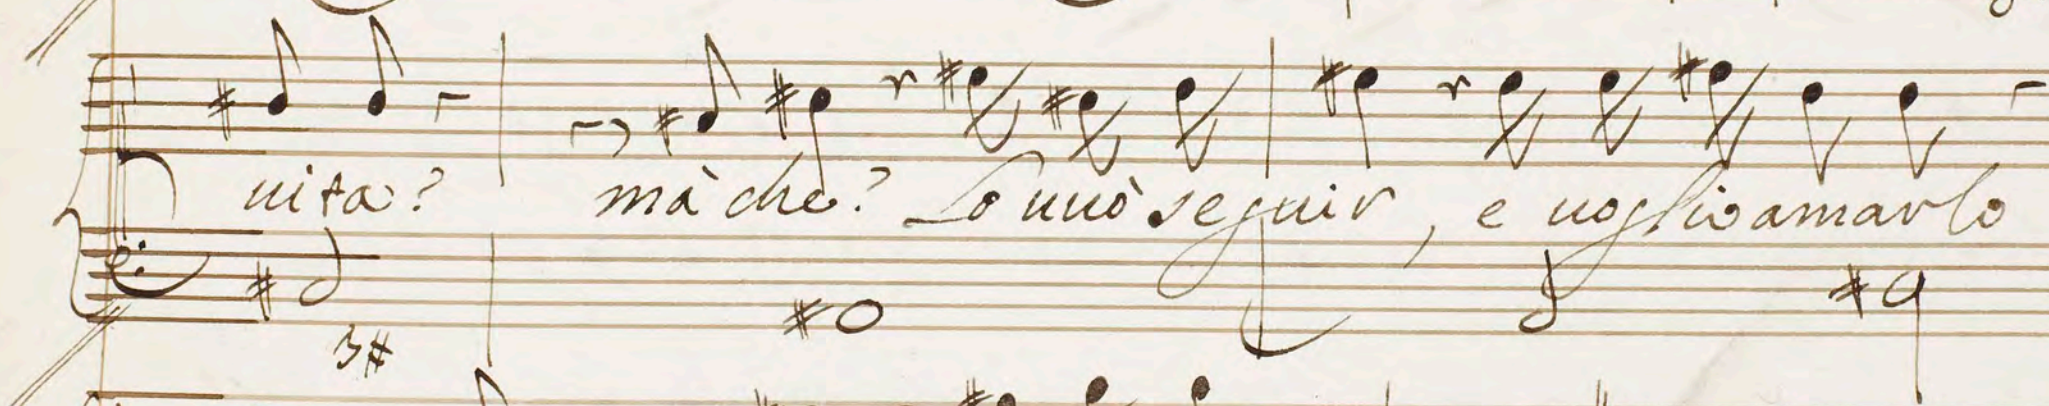 uita? mà che? Lo uuò seguir, e uoglio amarlo
3#